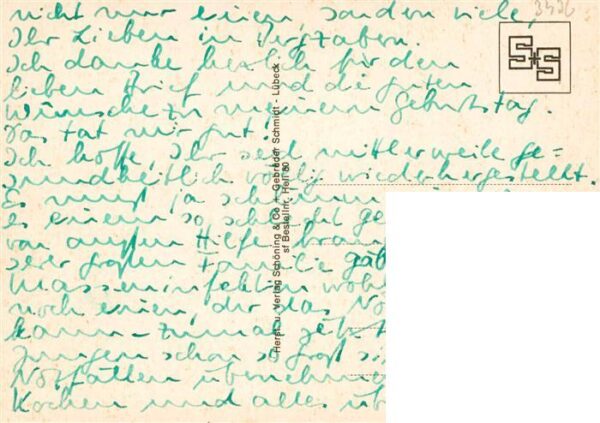 nicht nur einen sondern viele,
Ihr Lieben in Bergzabern.
Ich danke herzlich für den
lieben Brief und die guten
Wünsche zu meinem Geburtstag.
Das tat mir gut.
Ich hoffe, Ihr seid mittlerweile ge=
sundheitlich völlig wiederhergestellt.
Es muß ja schlimm
es einem so schlecht ge
von außen Hilfe brau
serer großen Familie gab
Masseninfektion wohl
noch einen, der das No
kann - zumal jetzt
Jungen schon so groß si
Notfällen übernehmen
Kochen und alles üb
3436
S+S
Herst. u. Verlag Schöning & Co + Gebrüder Schmidt - Lübeck
sf Bestellnr. Hell 80